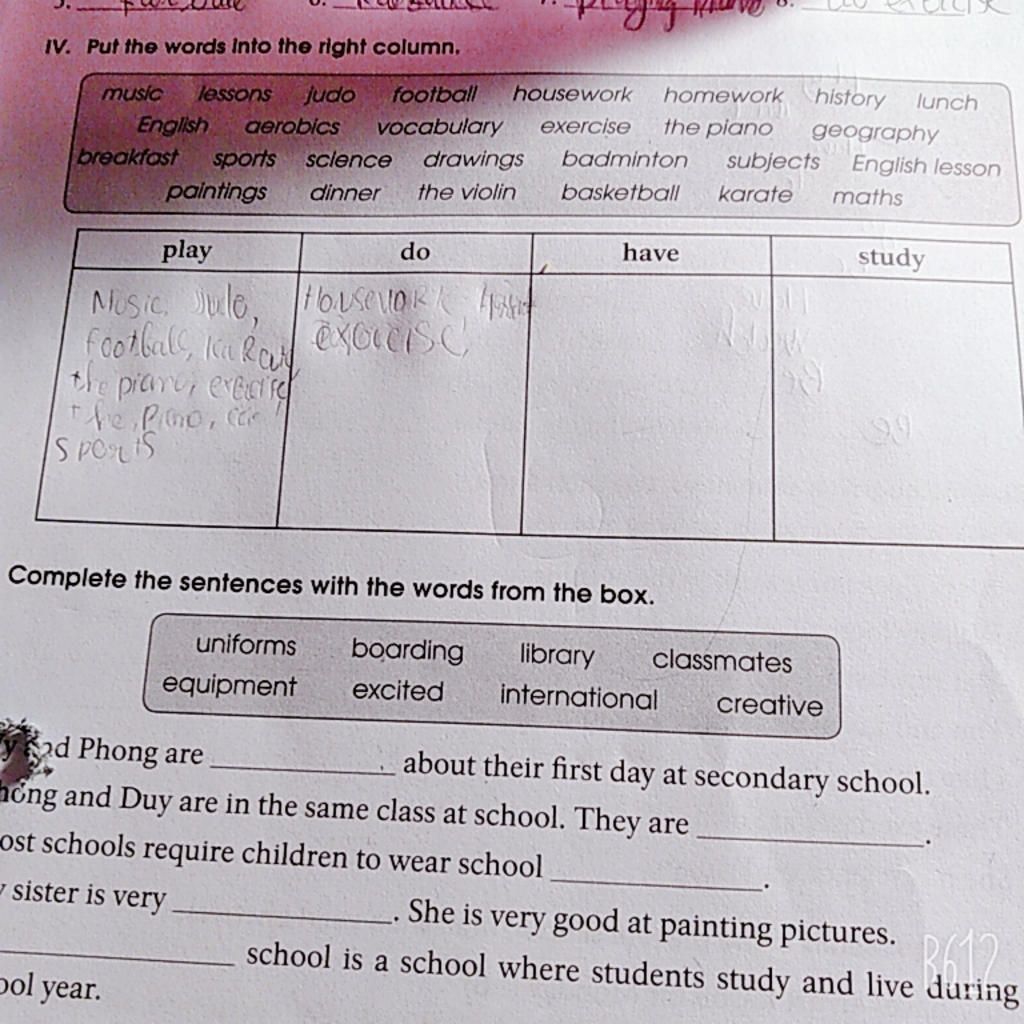 playing piano 8. do exercise
IV. Put the words into the right column.
music lessons judo football housework homework history lunch
English aerobics vocabulary exercise the piano geography
breakfast sports science drawings badminton subjects English lesson
paintings dinner the violin basketball karate maths
play do have study
Music, Judo, Housework
football, exercise
the piano, exercise
the, Piano,
sports
Complete the sentences with the words from the box.
uniforms boarding library classmates
equipment excited international creative
Phong are ____________ about their first day at secondary school.
and Duy are in the same class at school. They are ____________.
ost schools require children to wear school ____________.
sister is very ____________. She is very good at painting pictures.
____________ school is a school where students study and live during
ool year.
B612